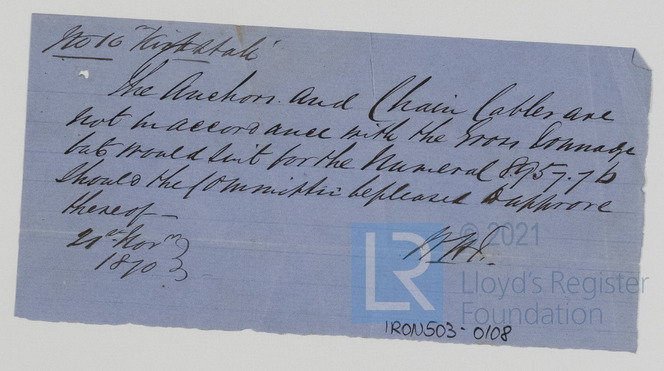 No 16 "Kirkstall"
The Anchors and Chain Cables are
not in accordance with the Gross Tonnage
but would suit for the Numeral 8957.76
should the Committee be pleased to approve
thereof—
21st Novr
1870
© 2021
LR
Lloyd's Register
Foundation
IRON503-0108